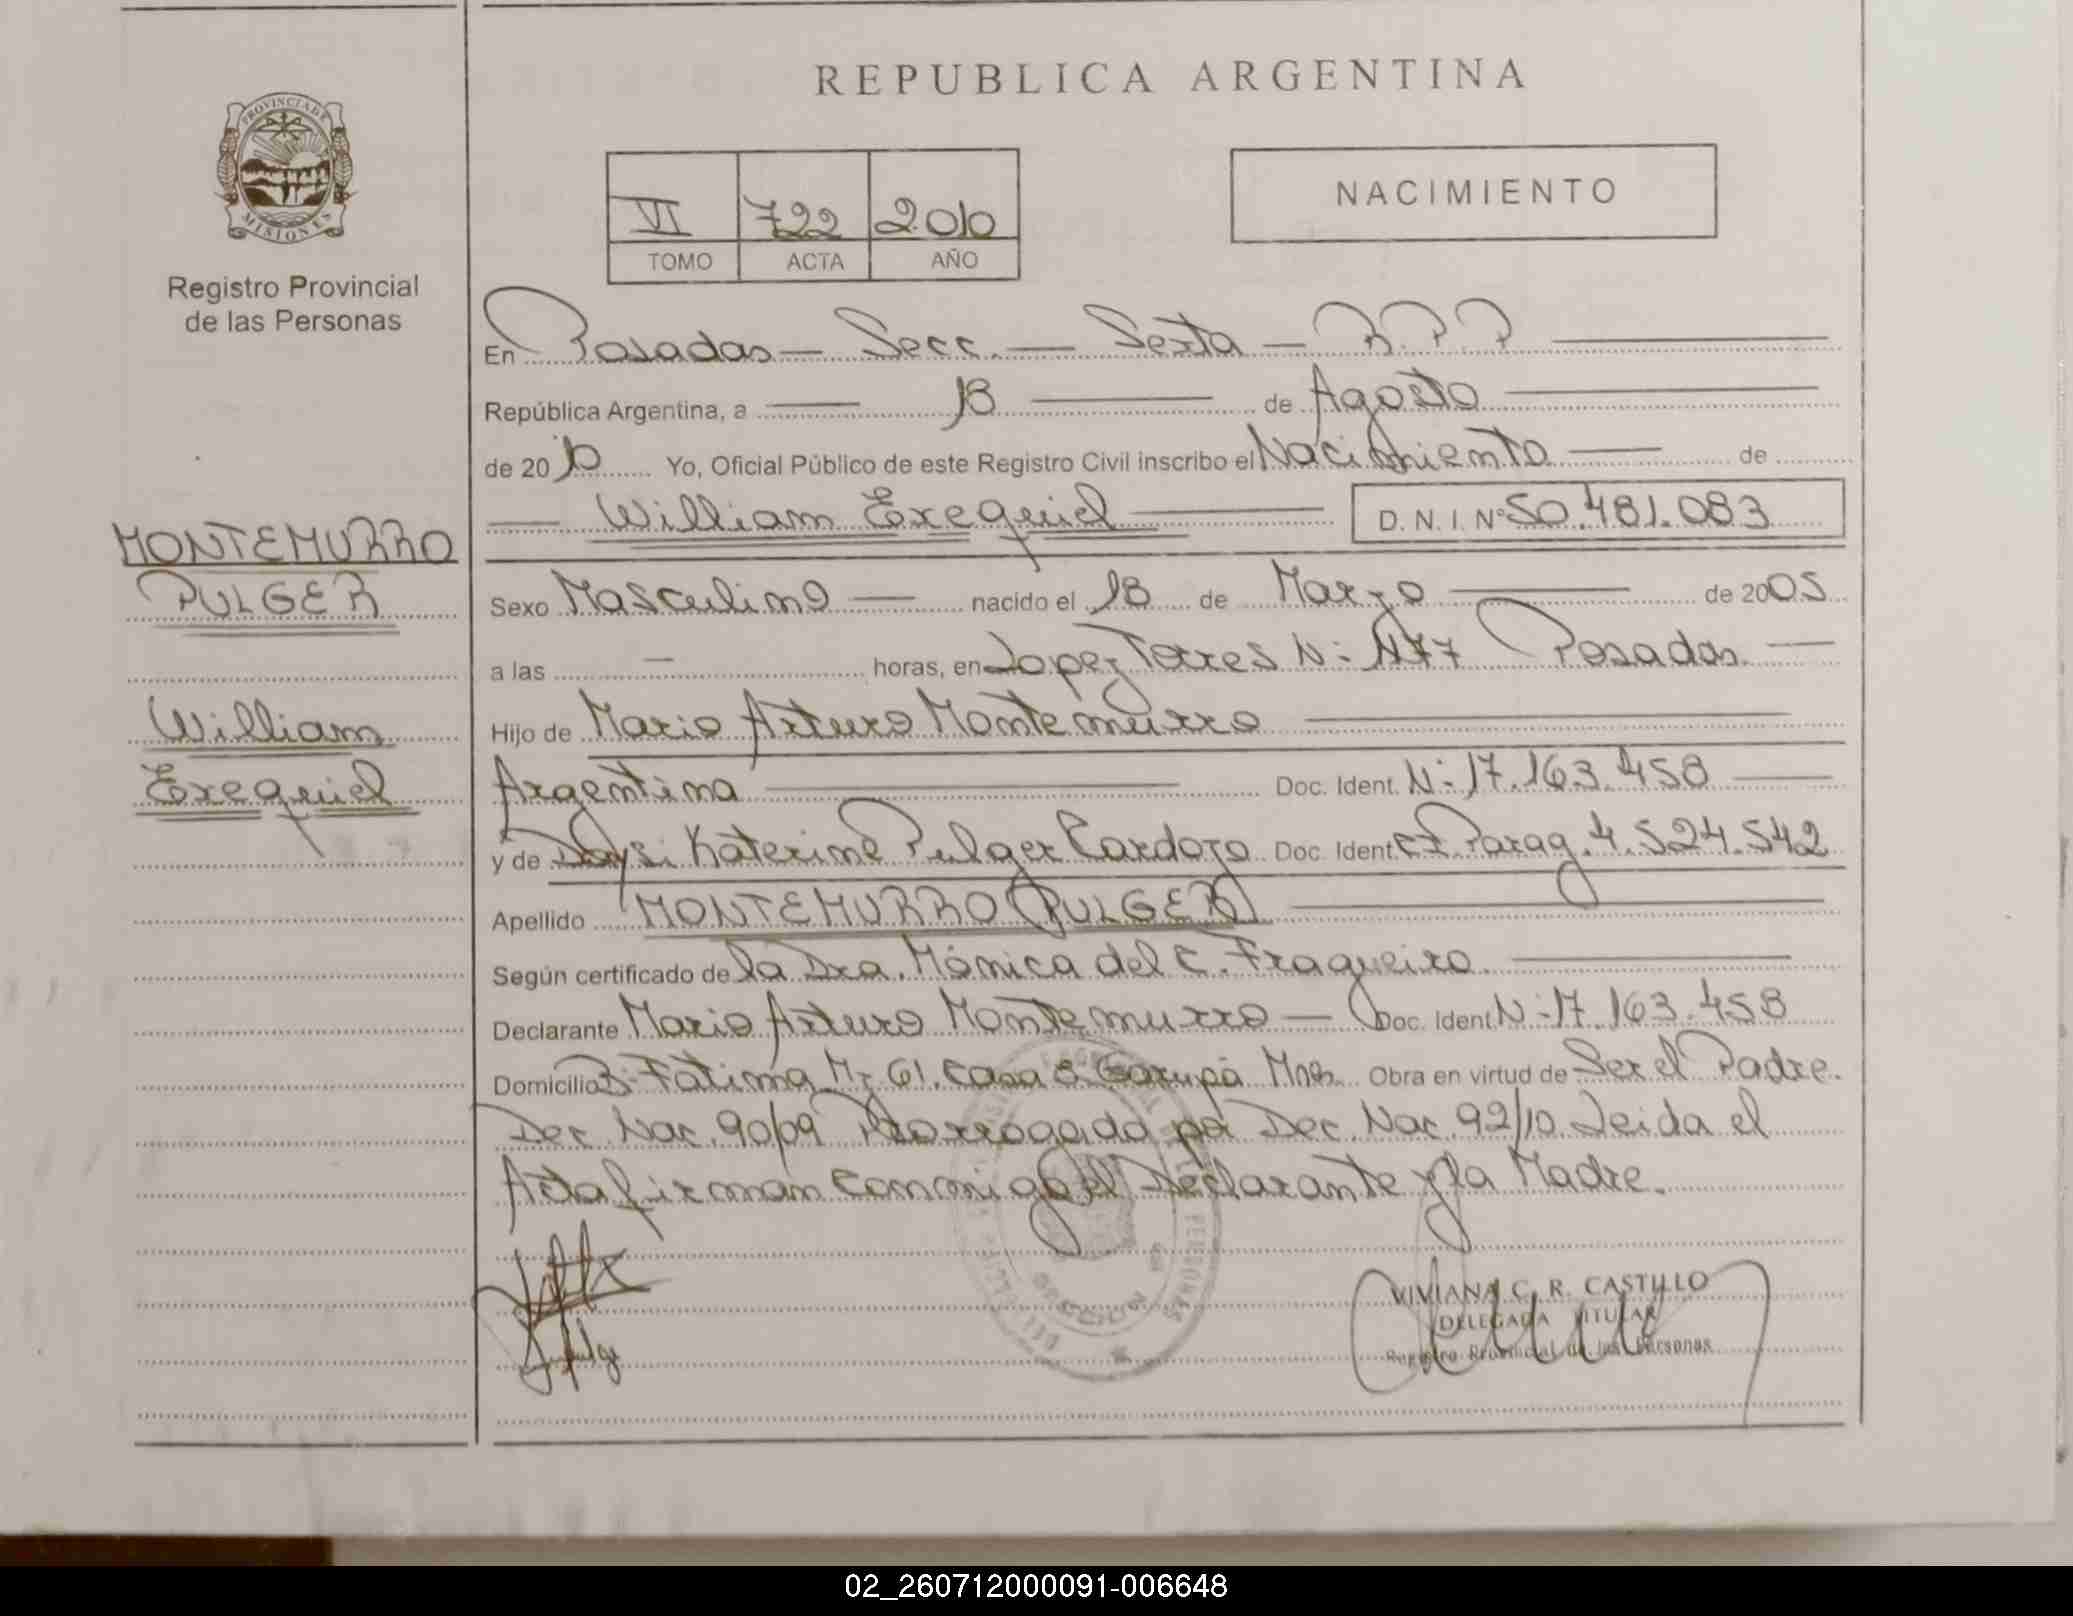 REPUBLICA ARGENTINA
PROVINCIA DE
MISIONES
Registro Provincial
de las Personas
VI 722 2010
TOMO ACTA AÑO
NACIMIENTO
En Posadas — Secc. — Sexta — R.P.P
República Argentina, a — 18 — de Agosto
de 2010 Yo, Oficial Público de este Registro Civil inscribo el Nacimiento — de
— William Exequiel — D. N. I. Nº 50.481.083
MONTEMURRO
PULGER
William
Exequiel
Sexo Masculino — nacido el 18 de Marzo — de 2005
a las — horas, en Lopez Torres N: 1177 Posadas. —
Hijo de Mario Arturo Montemurro
Argentina — Doc. Ident. N: 17.163.458 —
y de Daysi Katerine Pulger Cardozo Doc. Ident. CI Parag. 4.524.542
Apellido MONTEMURRO (PULGER)
Según certificado de la Dra. Mónica del C. Fragueiro
Declarante Mario Arturo Montemurro — Doc. Ident N: 17.163.458
Domicilio B: Fátima Mz 61. Casa 8 Garupá Mnes. Obra en virtud de Ser el Padre.
Dec. Nac. 90/09 Prorrogado por Dec. Nac. 92/10. Leida el
Acta firman conmigo el Declarante y la Madre.
VIVIANA C. R. CASTILLO
DELEGADA TITULAR
Registro Provincial de las Personas
02_260712000091-006648